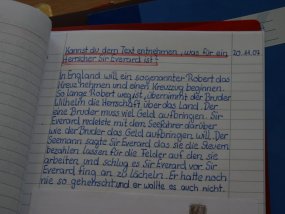 Kannst du dem Text entnehmen, was für ein 20.11.07
Herrscher Sir Everard ist?
In England will ein sogenannter Robert das
Kreuz nehmen und einen Kreuzug beginnen.
So lange Robert weg ist, übernimmt der Bruder
Wilhelm die Herrschaft über das Land. Der
eine Bruder muss viel Geld aufbringen. Sir
Everard redetete mit dem Seefahrer darüber
wie der Bruder das Geld aufbringen will. Der
Seemann sagte Sir Everard das sie die Steuern
bezahlen lassen für die Felder auf den sie
arbeiten, und schlug es Sir Everard vor. Sir
Everard fing an zu lächeln. Er hatte noch
nie so geherrscht und er wollte es auch nicht.